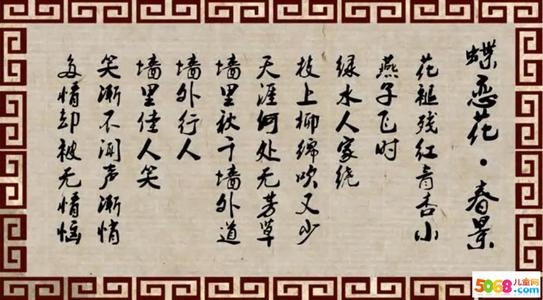 蝶恋花·春景
花褪残红青杏小
燕子飞时
绿水人家绕
枝上柳绵吹又少
天涯何处无芳草
墙里秋千墙外道
墙外行人
墙里佳人笑
笑渐不闻声渐悄
多情却被无情恼
5068儿童网